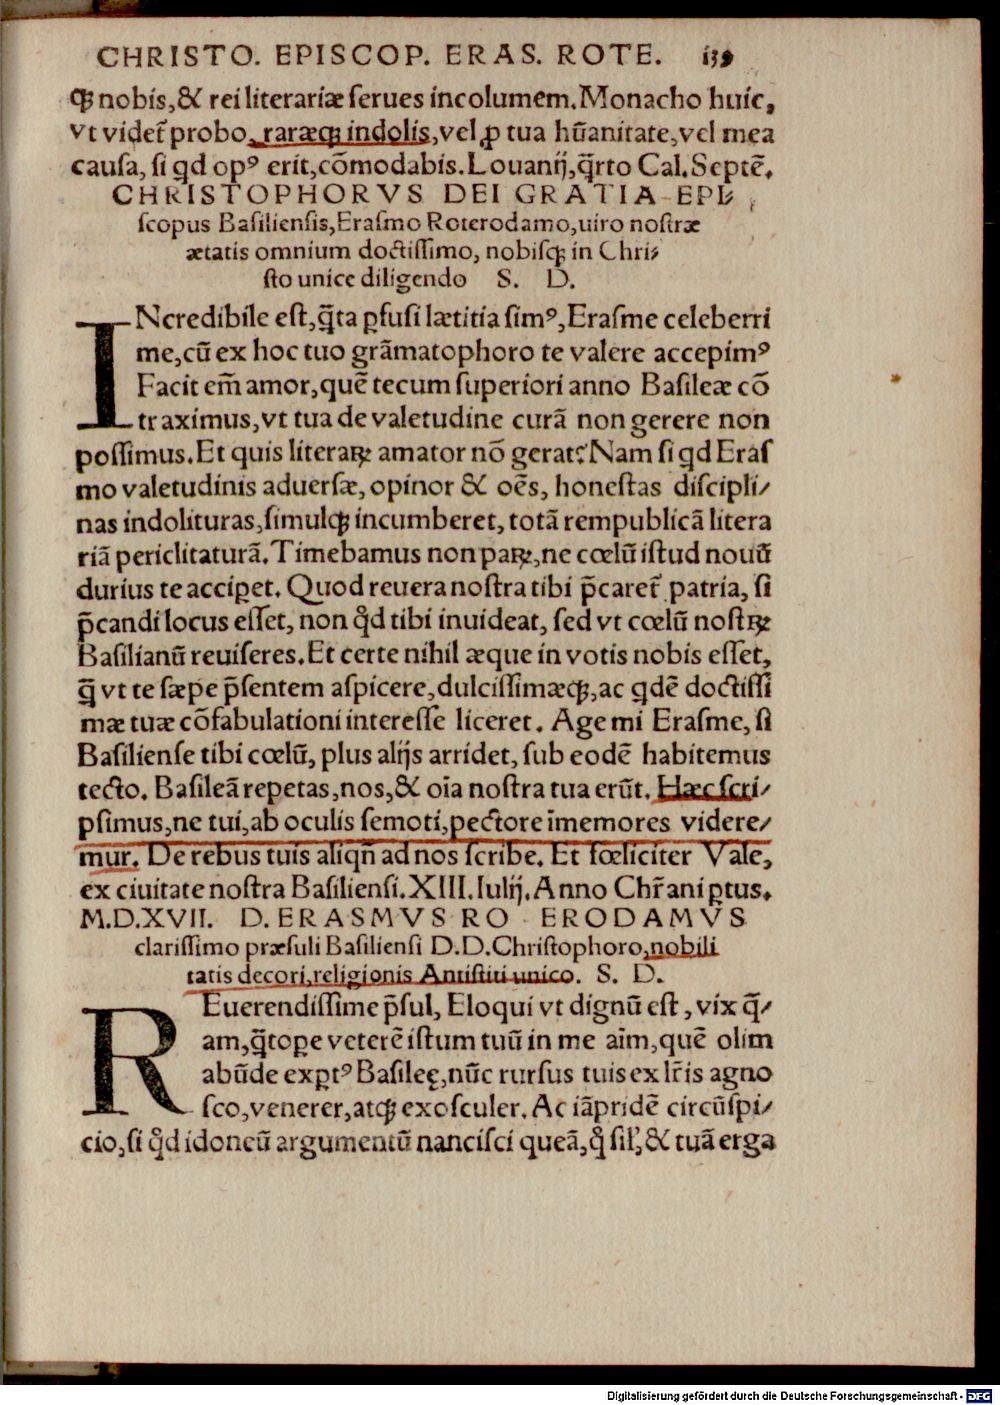 CHRISTO. EPISCOP. ERAS. ROTE. 139
qꝫ nobis,& rei literariæ serues incolumem.Monacho huic,
vt videt᷑ probo, raræqꝫ indolis,vel ꝓ tua hũanitate,vel mea
causa, si qd opꝰ erit,cõmodabis.Louanij,q̃rto Cal.Septẽ.
CHRISTOPHORVS DEI GRATIA EPI⸗
scopus Basiliensis,Erasmo Roterodamo,uiro nostræ
ætatis omnium doctissimo, nobisqꝫ in Chri⸗
sto unice diligendo S. D.
INcredibile est,q̃ta ꝑfusi lætitia simꝰ,Erasme celeberri
me,cũ ex hoc tuo grãmatophoro te valere accepimꝰ
Facit em̃ amor,quẽ tecum superiori anno Basileæ cõ
traximus,vt tua de valetudine curã non gerere non
possimus.Et quis literaꝝ amator nõ gerat? Nam si qd Eras
mo valetudinis aduersæ, opinor & oẽs, honestas discipli⸗
nas indolituras,simulqꝫ incumberet, totã rempublicã litera
riã periclitaturã.Timebamus non paꝝ,ne cœlũ istud nouũ
durius te acciꝑet. Quod reuera nostra tibi p̃caret᷑ patria, si
p̃candi locus esset, non qͥd tibi inuideat, sed vt cœlũ nostꝝ
Basilianũ reuiseres.Et certe nihil æque in votis nobis esset,
q̃ vt te sæpe p̃sentem aspicere,dulcissimæqꝫ,ac qdẽ doctissi
mæ tuæ cõfabulationi interesse liceret. Age mi Erasme, si
Basiliense tibi cœlũ, plus alijs arridet, sub eodẽ habitemus
tecto. Basileã repetas,nos,& oĩa nostra tua erũt. Hæc scri⸗
psimus,ne tui,ab oculis semoti,pectore ĩmemores videre⸗
mur. De rebus tuis aliqñ ad nos scribe. Et fœliciter Vale,
ex ciuitate nostra Basiliensi.XIII.Iulij.Anno Chr̃ani ꝑtus.
M.D.XVII. D. ERASMVS RO ERODAMVS
clarissimo præsuli Basiliensi D.D.Christophoro,nobili
tatis decori,religionis Antistiti unico. S. D.
REuerendissime p̃sul, Eloqui vt dignũ est, vix q̃⸗
am,q̃toꝑe veterẽ istum tuũ in me aĩm,quẽ olim
abũde exꝑtꝰ Basileę,nũc rursus tuis ex lr̃is agno
sco,venerer,atqꝫ exosculer. Ac iãpridẽ circũspi⸗
cio,si qͥd idoneũ argumentũ nancisci queã,qͦ sil',& tuã erga
Digitalisierung gefördert durch die Deutsche Forschungsgemeinschaft - DFG